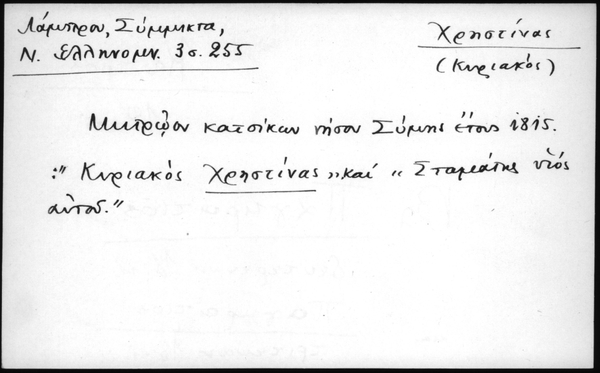 Λάμπρου, Σύμμικτα,
Ν. Ελληνομν. 3 σ. 255
Χρηστίνας
(Κυριακός)
Μητρῷον κατοίκων νήσου Σύμης ἔτους 1815.
:" Κυριακός Χρηστίνας" καί "Σταμάτης υἱός
αὐτοῦ."